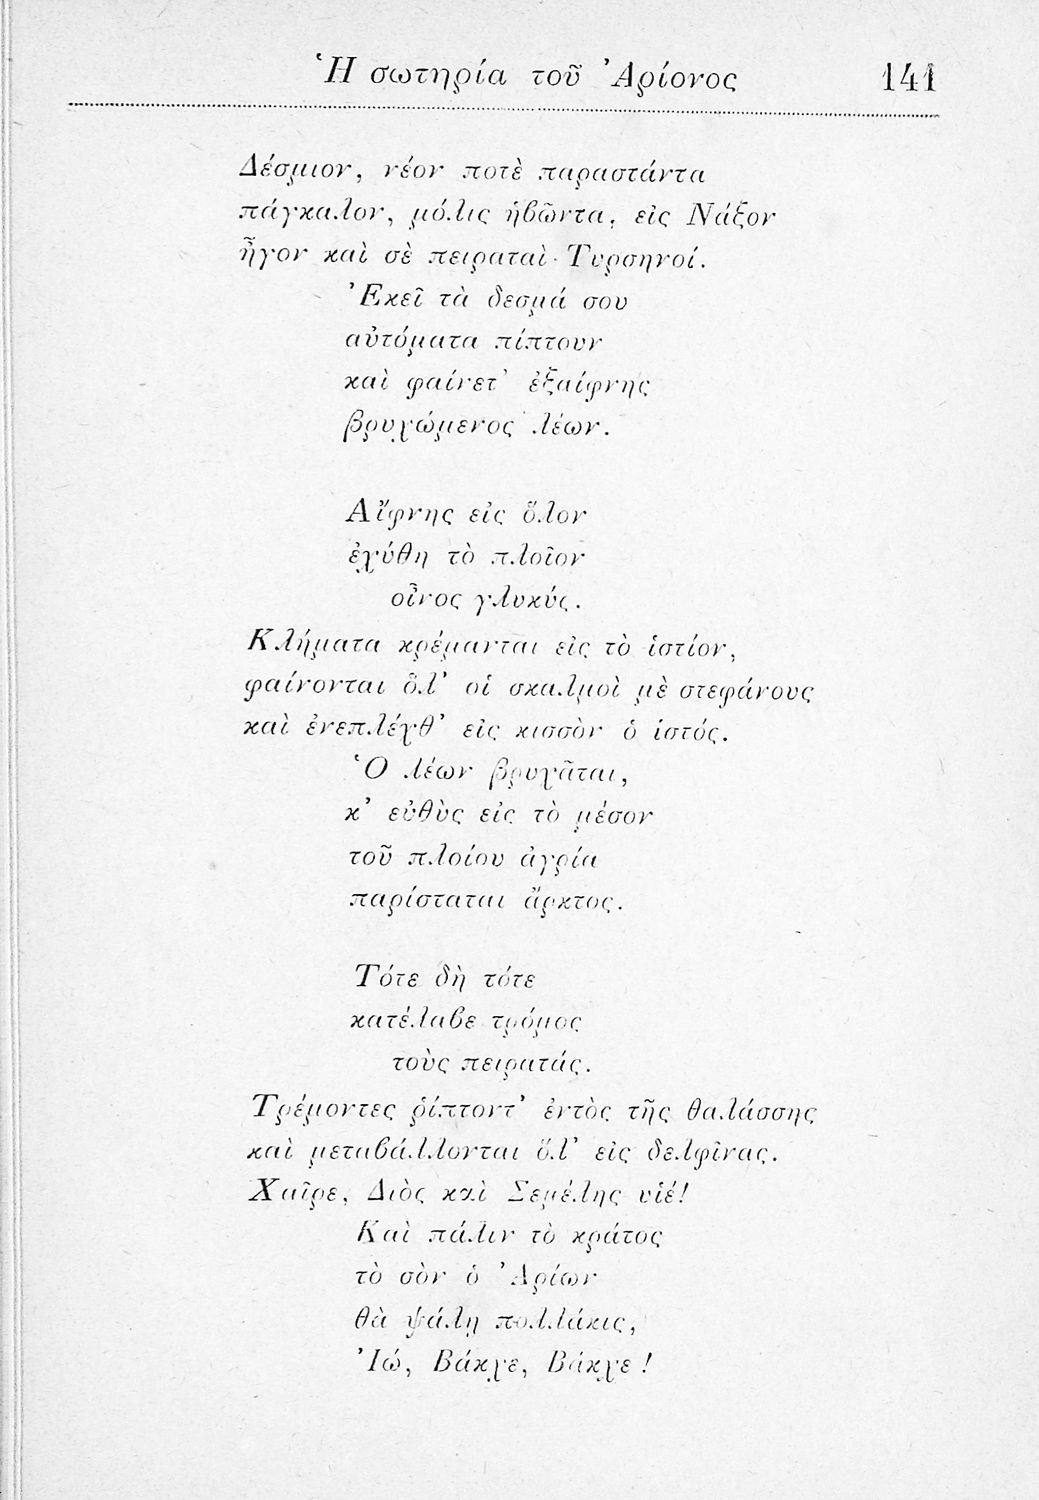 Ἡ σωτηρία τοῦ Ἀρίονος 141
Δέσμιον, νέον ποτὲ παραστάντα
πάγκαλον, μόλις ἡβῶντα, εἰς Νάξον
ἦγον καὶ σὲ πειραταὶ Τυρσηνοί.
Ἐκεῖ τὰ δεσμά σου
αὐτόματα πίπτουν
καὶ φαίνετ' ἐξαίφνης
βρυχώμενος λέων.
Αἴφνης εἰς ὅλον
ἐχύθη τὸ πλοῖον
οἶνος γλυκύς.
Κλήματα κρέμανται εἰς τὸ ἱστίον,
φαίνονται ὅλ' οἱ σκαλμοὶ μὲ στεφάνους
καὶ ἐνεπλέχθ' εἰς κισσὸν ὁ ἱστός.
Ὁ λέων βρυχᾶται,
κ' εὐθὺς εἰς τὸ μέσον
τοῦ πλοίου ἀγρία
παρίσταται ἄρκτος.
Τότε δὴ τότε
κατέλαβε τρόμος
τοὺς πειρατάς.
Τρέμοντες ῥίπτοντ' ἐντὸς τῆς θαλάσσης
καὶ μεταβάλλονται ὅλ' εἰς δελφῖνας.
Χαῖρε, Διὸς καὶ Σεμέλης υἱέ!
Καὶ πάλιν τὸ κράτος
τὸ σὸν ὁ Ἀρίων
θὰ ψάλῃ πολλάκις,
Ἰώ, Βάκχε, Βάκχε!